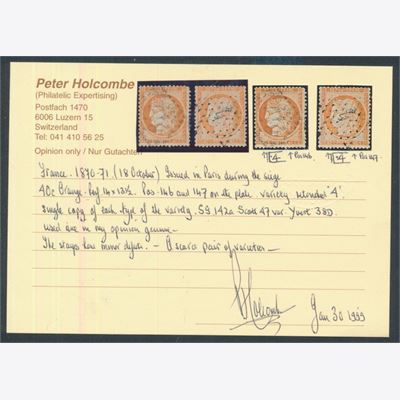 Peter Holcombe
(Philatelic Expertising)
Postfach 1470
6006 Luzern 15
Switzerland
Tel: 041 410 56 25
Opinion only / Nur Gutachten
↑ Pos 146
↑ Pos 147
France. 1870-71. (18 October) Issued in Paris during the siege
40c Orange. perf 14 x 13½. Pos. 146 and 147 on the plate variety retouched '4'.
single copy of each type of the variety. SG 142a Scott 47 var. Yvert 38D.
used are in my opinion genuine —
The stamps have minor defects. — A scarce pair of varieties —
Holcombe
Jan 30 1999